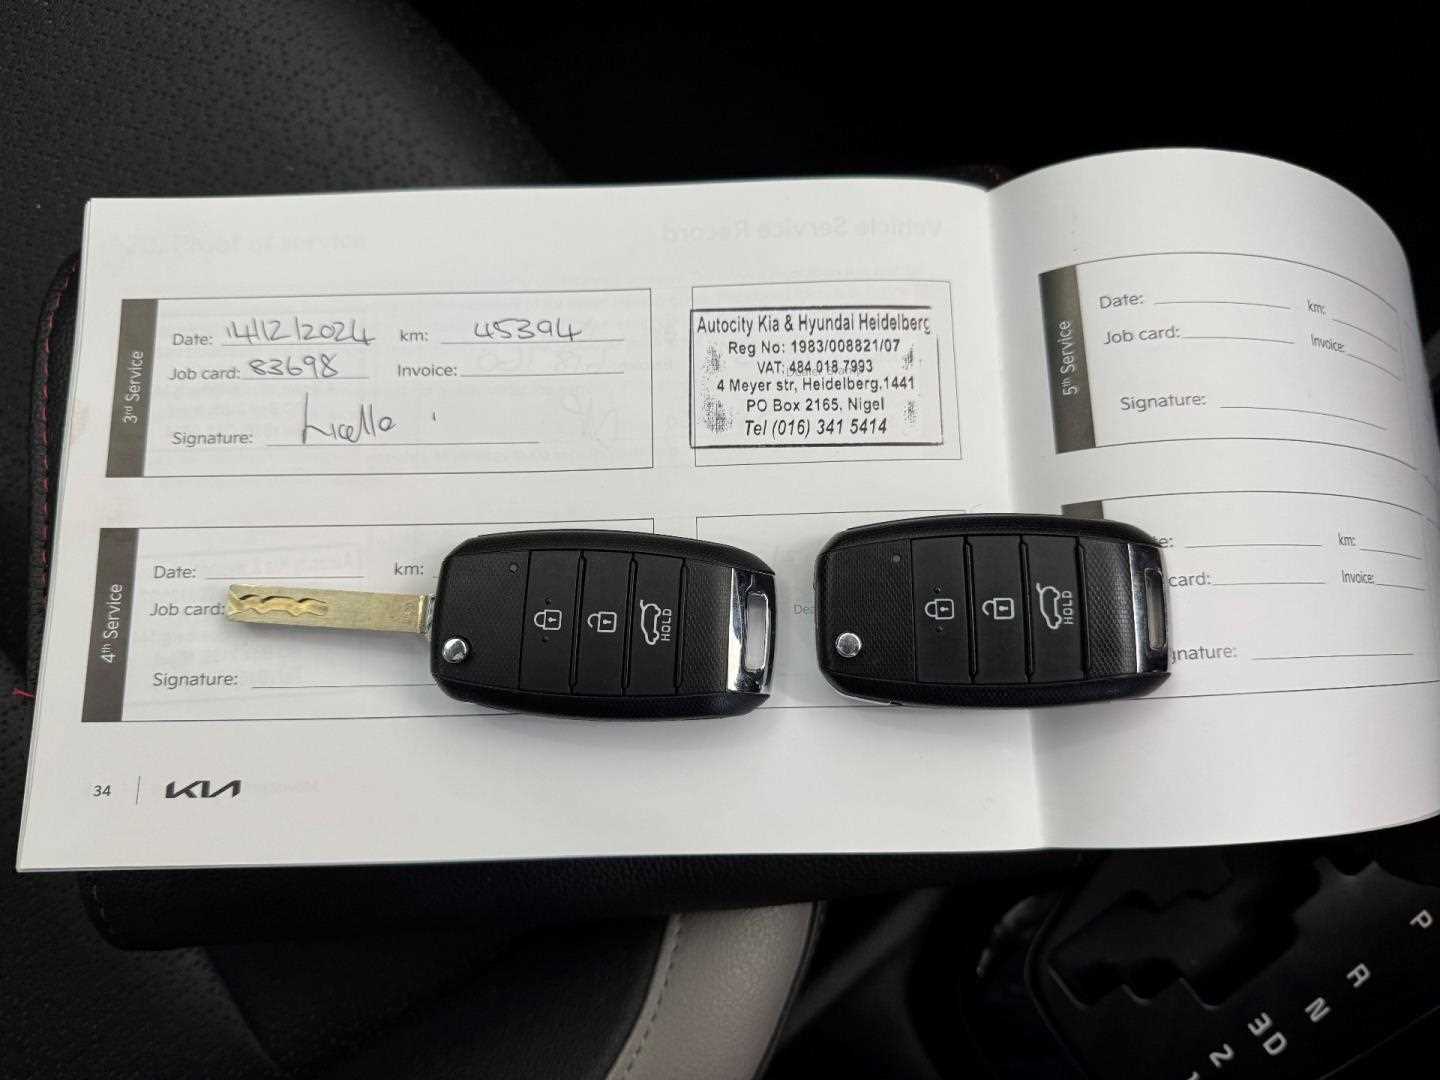 Vehicle Service Record
3rd Service
Date: 14/12/2024 km: 45394
Job card: 83698 Invoice:
Signature:
Autocity Kia & Hyundai Heidelberg
Reg No: 1983/008821/07
VAT: 484 018 7993
4 Meyer str, Heidelberg,1441
PO Box 2165, Nigel
Tel (016) 341 5414
4th Service
Date: km:
Job card:
Signature:
34 KIA
5th Service
Date: km:
Job card: Invoice:
Signature:
te: km:
card: Invoice:
gnature:
Dea
HOLD
HOLD
P
R
N
D
3
2
1